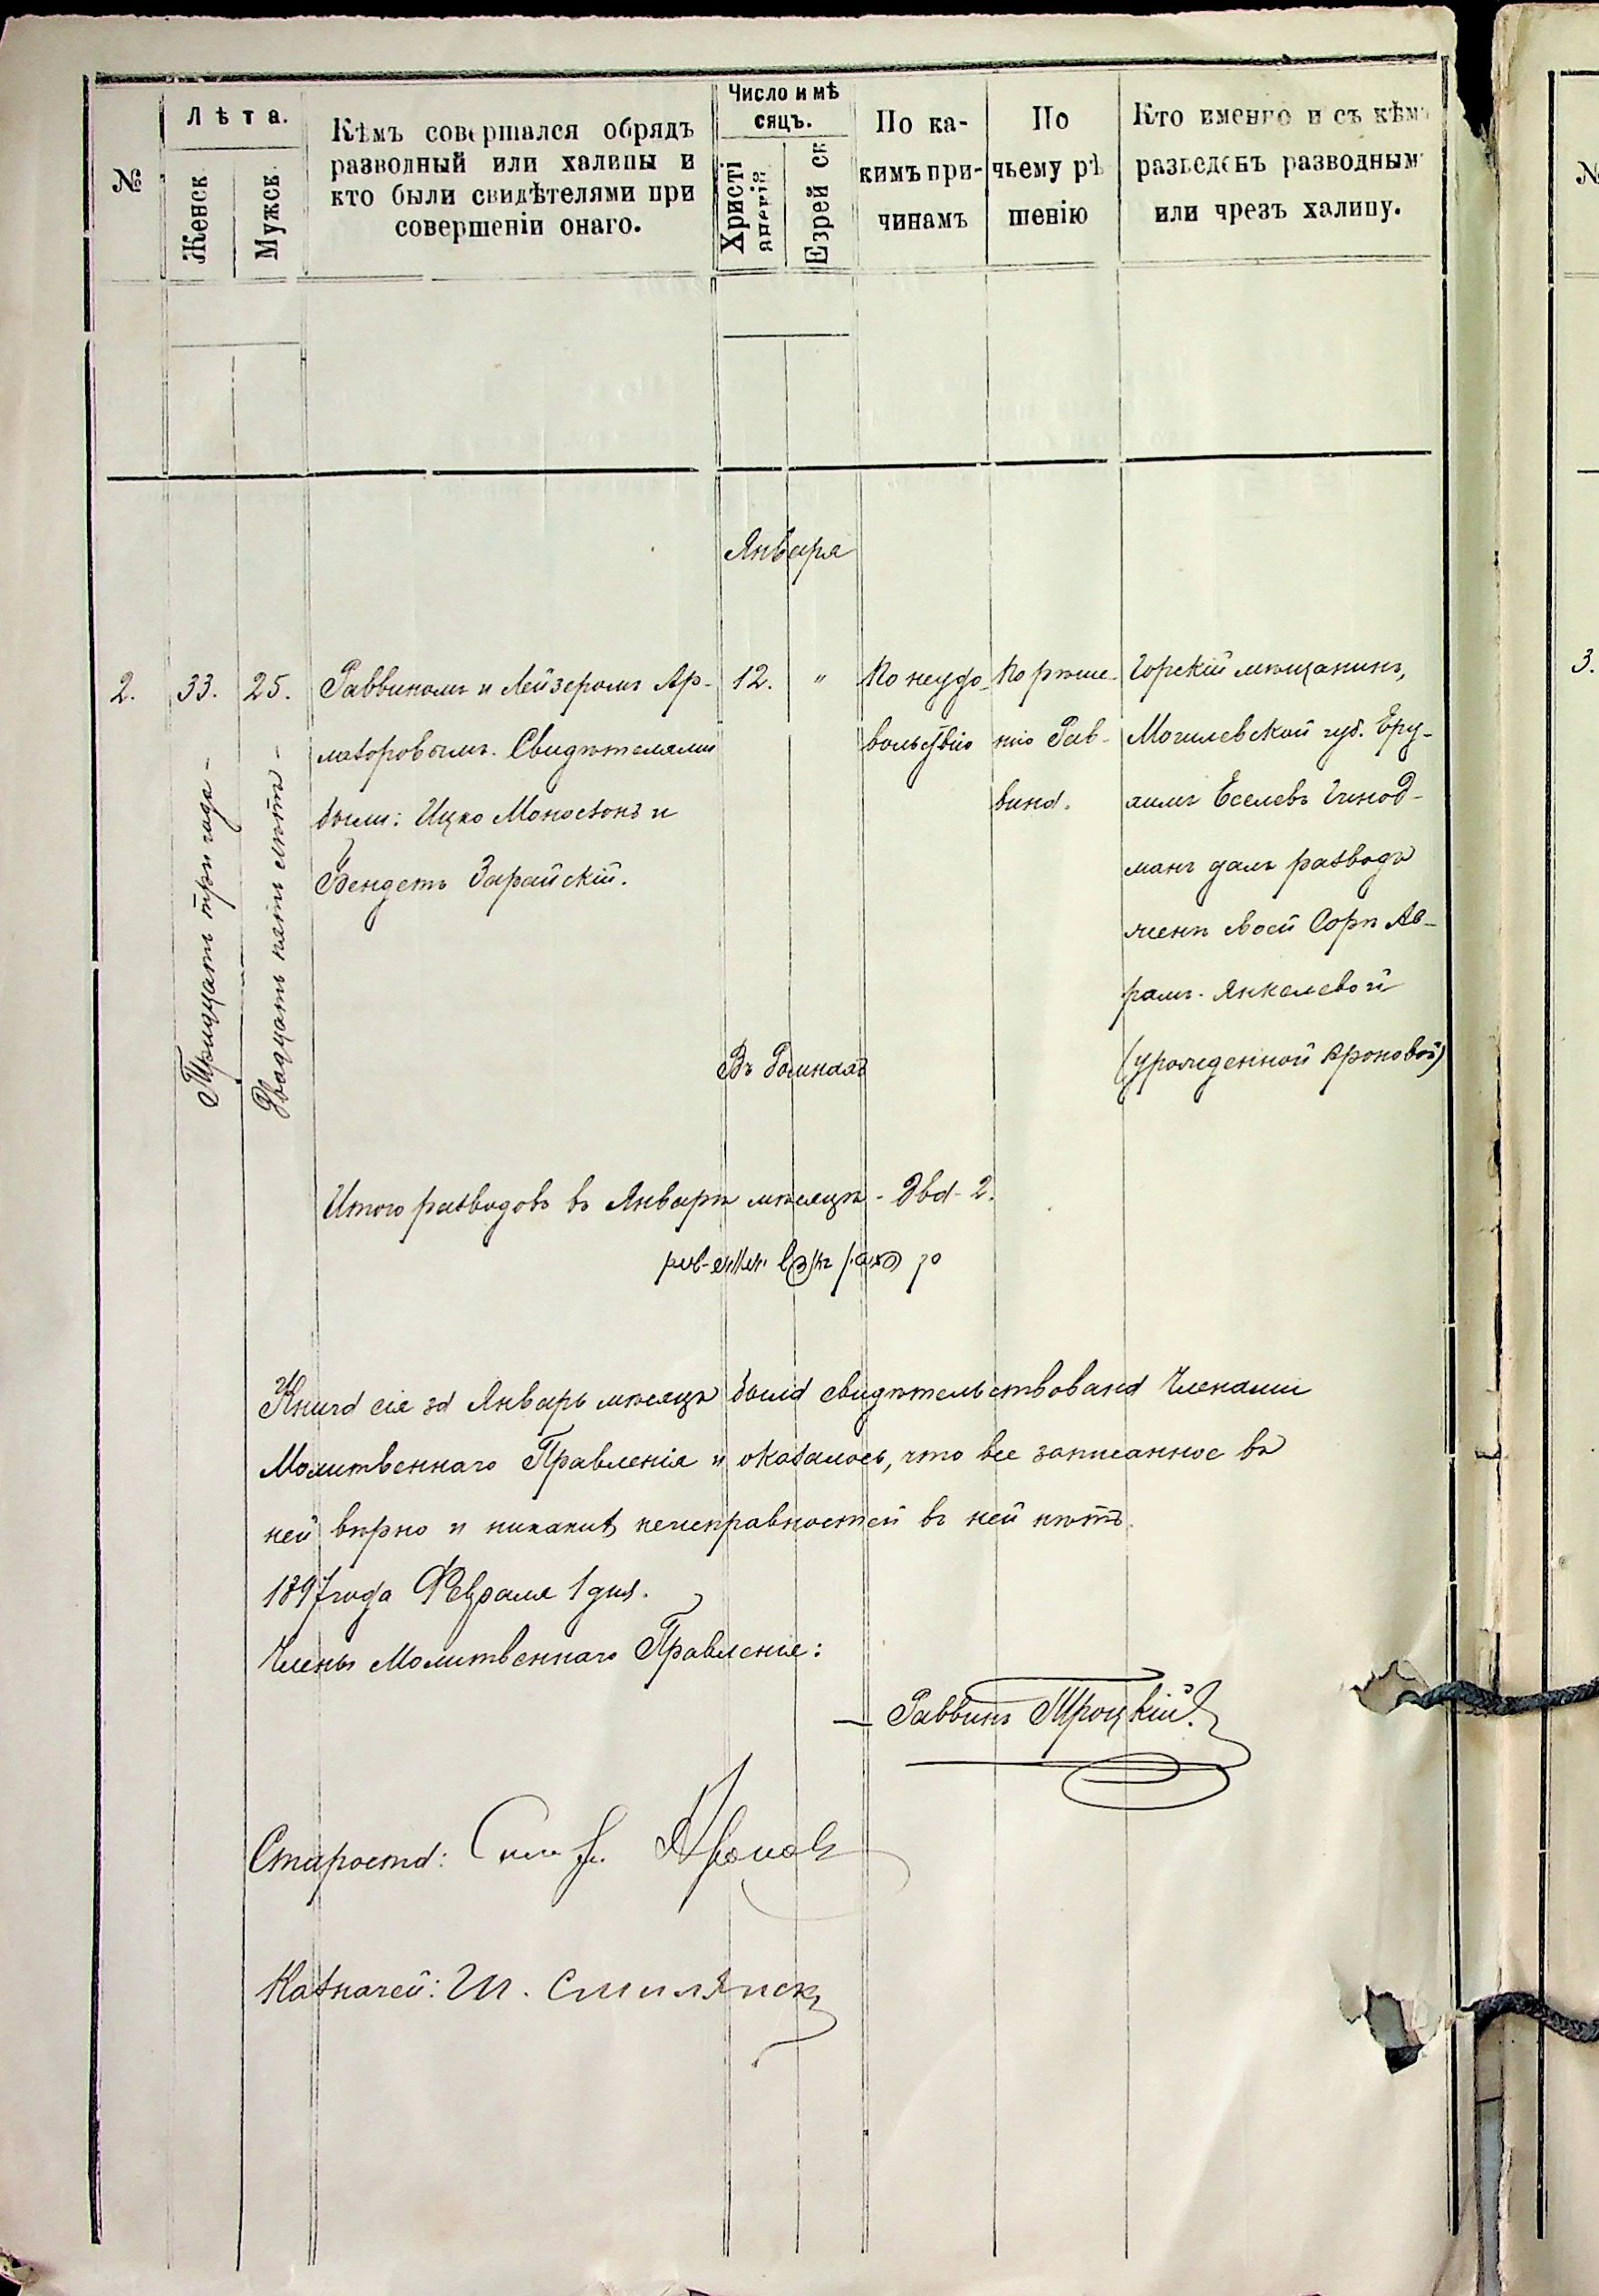 №
Лѣта.
Женск
Мужск
Кѣмъ совершался обрядъ
разводный или халицы и
кто были свидѣтелями при
совершеніи онаго.
Число и мѣ
сяцъ.
Христі
анскій
Еврейск
По ка-
кимъ при-
чинамъ
По
чьему рѣ
шенію
Кто именно и съ кѣмъ
разведенъ разводным
или чрезъ халицу.
Января
2.
33.
Тридцать три года -
25.
Двадцать пять лѣтъ -
Раввиномъ и Лейзеромъ Ар-
маторовымъ. Свидѣтелями
были: Ицко Моносзонъ и
Бендетъ Зарайскій.
12.
"
Въ Ромнахъ
По неудо-
вольствію
По рѣше-
нію Рав-
вина.
Горскій мѣщанинъ,
Могилевской губ. Еру-
химъ Еселевъ Гинод-
манъ далъ разводъ
женѣ своей Сорѣ Ав-
рамъ-Янкелевой
(урожденной Ароновой)
Итого разводовъ въ Январѣ мѣсяцѣ - два - 2.
Книга сія за Январь мѣсяцъ была свидѣтельствована Членами
Молитвеннаго Правленія и оказалось, что все записанное въ
ней вѣрно и никакихъ неисправностей въ ней нѣтъ.
1897 года Февраля 1 дня.
Члены Молитвеннаго Правленія:
Раввинъ Троцкій.
Староста: Аронов
Казначей: Ш. Смилянск
№
3.